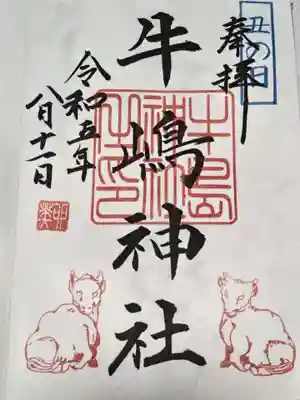 丑の日
奉拝
牛嶋神社
令和五年
八月十一日
牛島神社之印